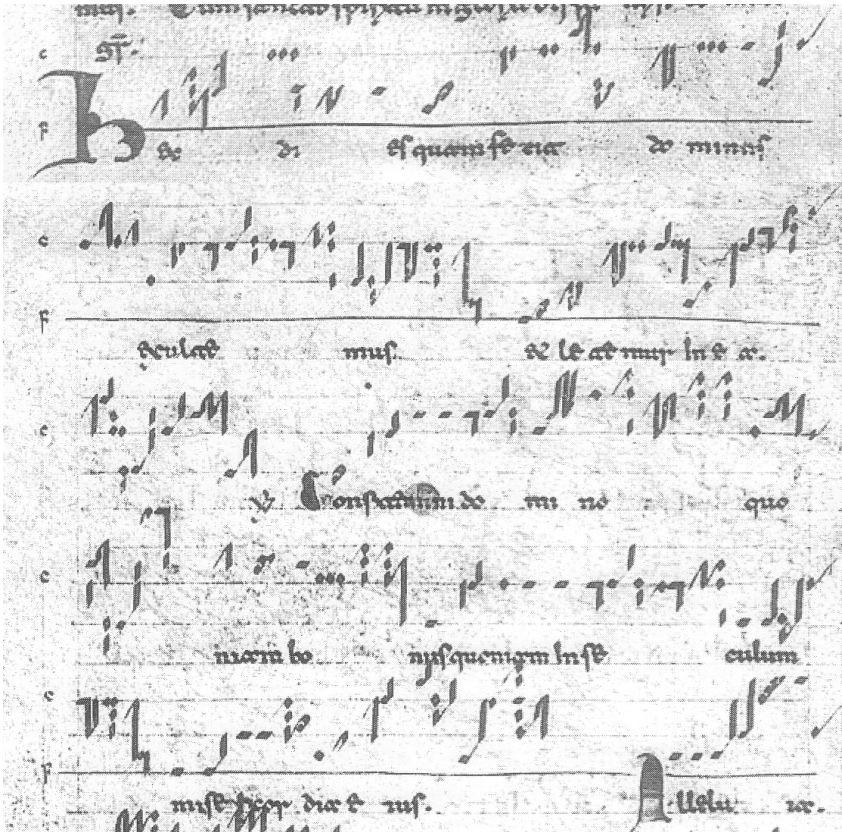 Gr.
Hec di es quam fe cit do minus
exulte mus. et le te mur in e a.
V Confitemini do mi no quo
niam bo nus quoniam in se culum
mise ricor dia e ius. Allelu ia.